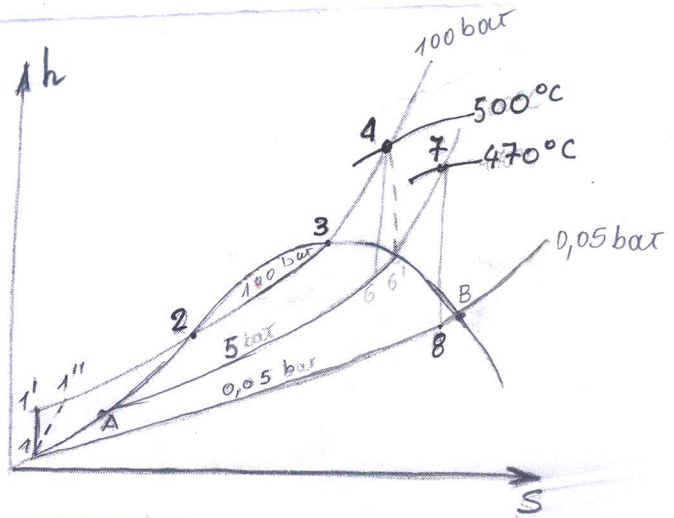 h
100 bar
500°C
4
7
470°C
3
0,05 bar
100 bar
6
6'
B
2
5 bar
8
0,05 bar
1'
1"
A
1
S